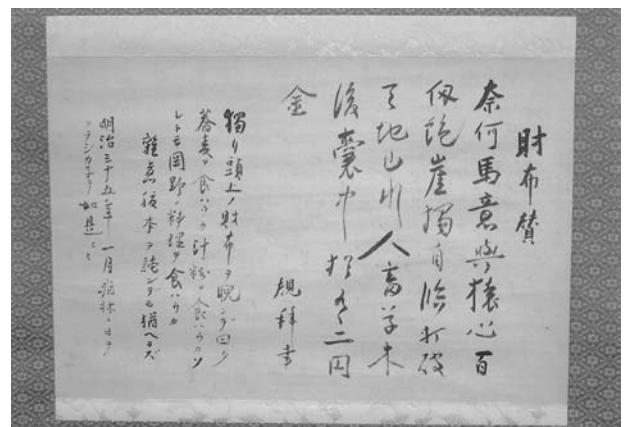 財布賛
奈何馬意與猿心百
仭絶崖獨自臨打破
天地山川人畜草木
後嚢中猶有二円
金
規拝書
獨リ頭上ノ財布ヲ睨ンデ曰ク
蕎麦ヲ食ハウカ汁粉ヲ食ハウカソ
レトモ岡野ノ料理ヲ食ハウカ
雑煮腹本ヲ読ンデモ猶ヘラズ
明治三十五年一月 病牀ニ日ヲ
如是